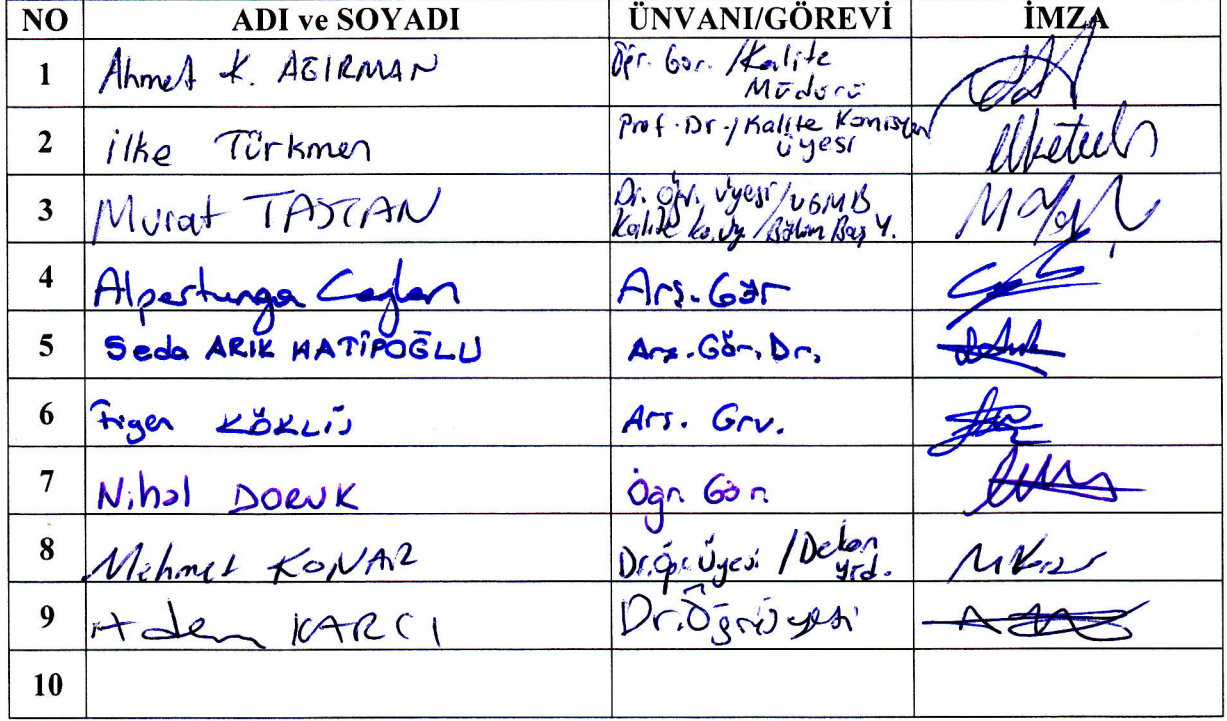 NO ADI ve SOYADI ÜNVANI/GÖREVİ İMZA
1 Ahmet K. AĞIRMAN Öğr. Gör. /Kalite
Müdürü
2 ilke Türkmen Prof. Dr. / Kalite Komisyon
üyesi
3 Murat TAŞTAN Dr. öğr. üyesi/UGMB
Kalite Ko. üy. /Bölüm Baş Y.
4 Alpertunga Ceylan Arş. Gör
5 Seda ARIK HATİPOĞLU Arş. Gör. Dr.
6 Figen KÖKLÜ Arş. Grv.
7 Nihal DORUK Öğr. Gör.
8 Mehmet KONAR Dr. Öğr. Üyesi /Dekan
yrd.
9 Adem KARCI Dr. Öğr. Üyesi
10